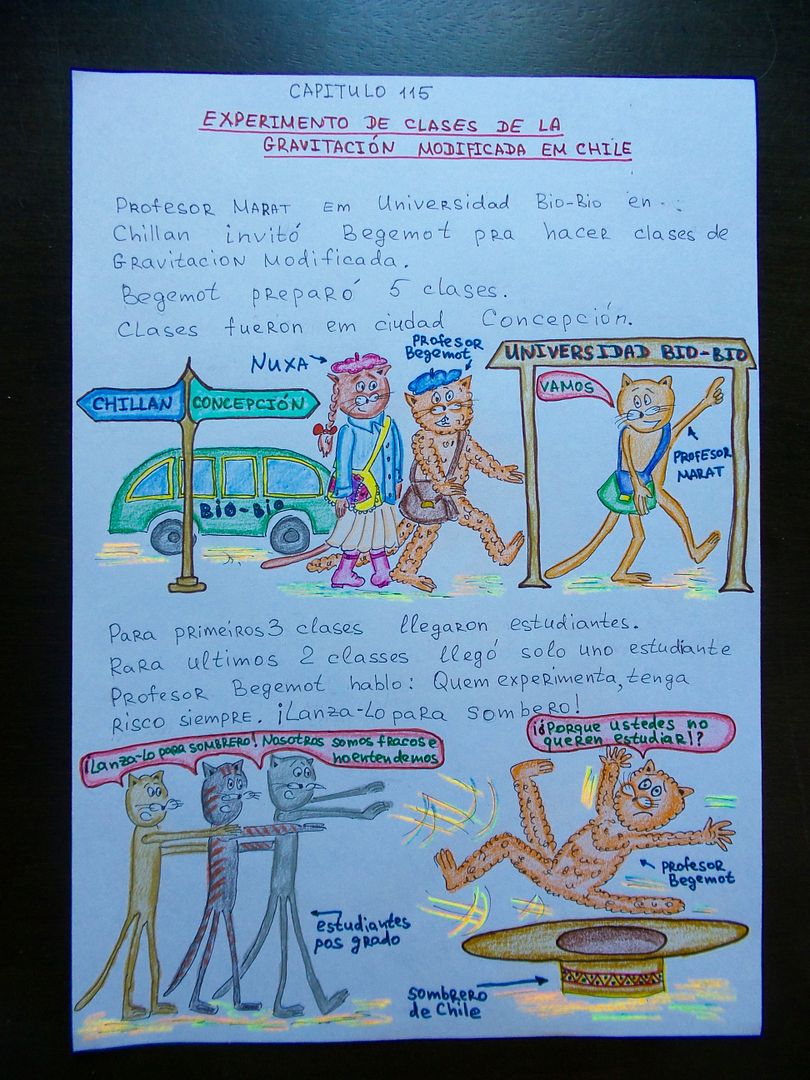 CAPITULO 115
EXPERIMENTO DE CLASES DE LA
GRAVITACIÓN MODIFICADA EM CHILE
PROFESOR MARAT EM Universidad Bio-Bio en..
Chillan invitó Begemot pra hacer clases de
GRAVITACION MODIFICADA.
Begemot preparó 5 clases.
CLASES fueron em ciudad Concepción.
NUXA
PROFESOR
Begemot
UNIVERSIDAD BIO-BIO
CHILLAN
CONCEPCIÓN
VAMOS
PROFESOR
MARAT
BIO-BIO
PARA PRIMEIROS 3 clases llegaron estudiantes.
RaRa ultimos 2 classes llegó solo uno estudiante
PROFESOR Begemot hablo: Quem experimenta, tenga
RISCO SIEMPRE. ¡Lanza-Lo para Sombero!
¡Lanza-Lo PARA SOMBRERO! NOSOTROS SOMOS FRACOS e
no entendemos
¡¿PORQUE USTEDES NO
QUEREN ESTUDIAR!?
PROFESOR
Begemot
estudiantes
pos grado
SOMBRERO
de Chile